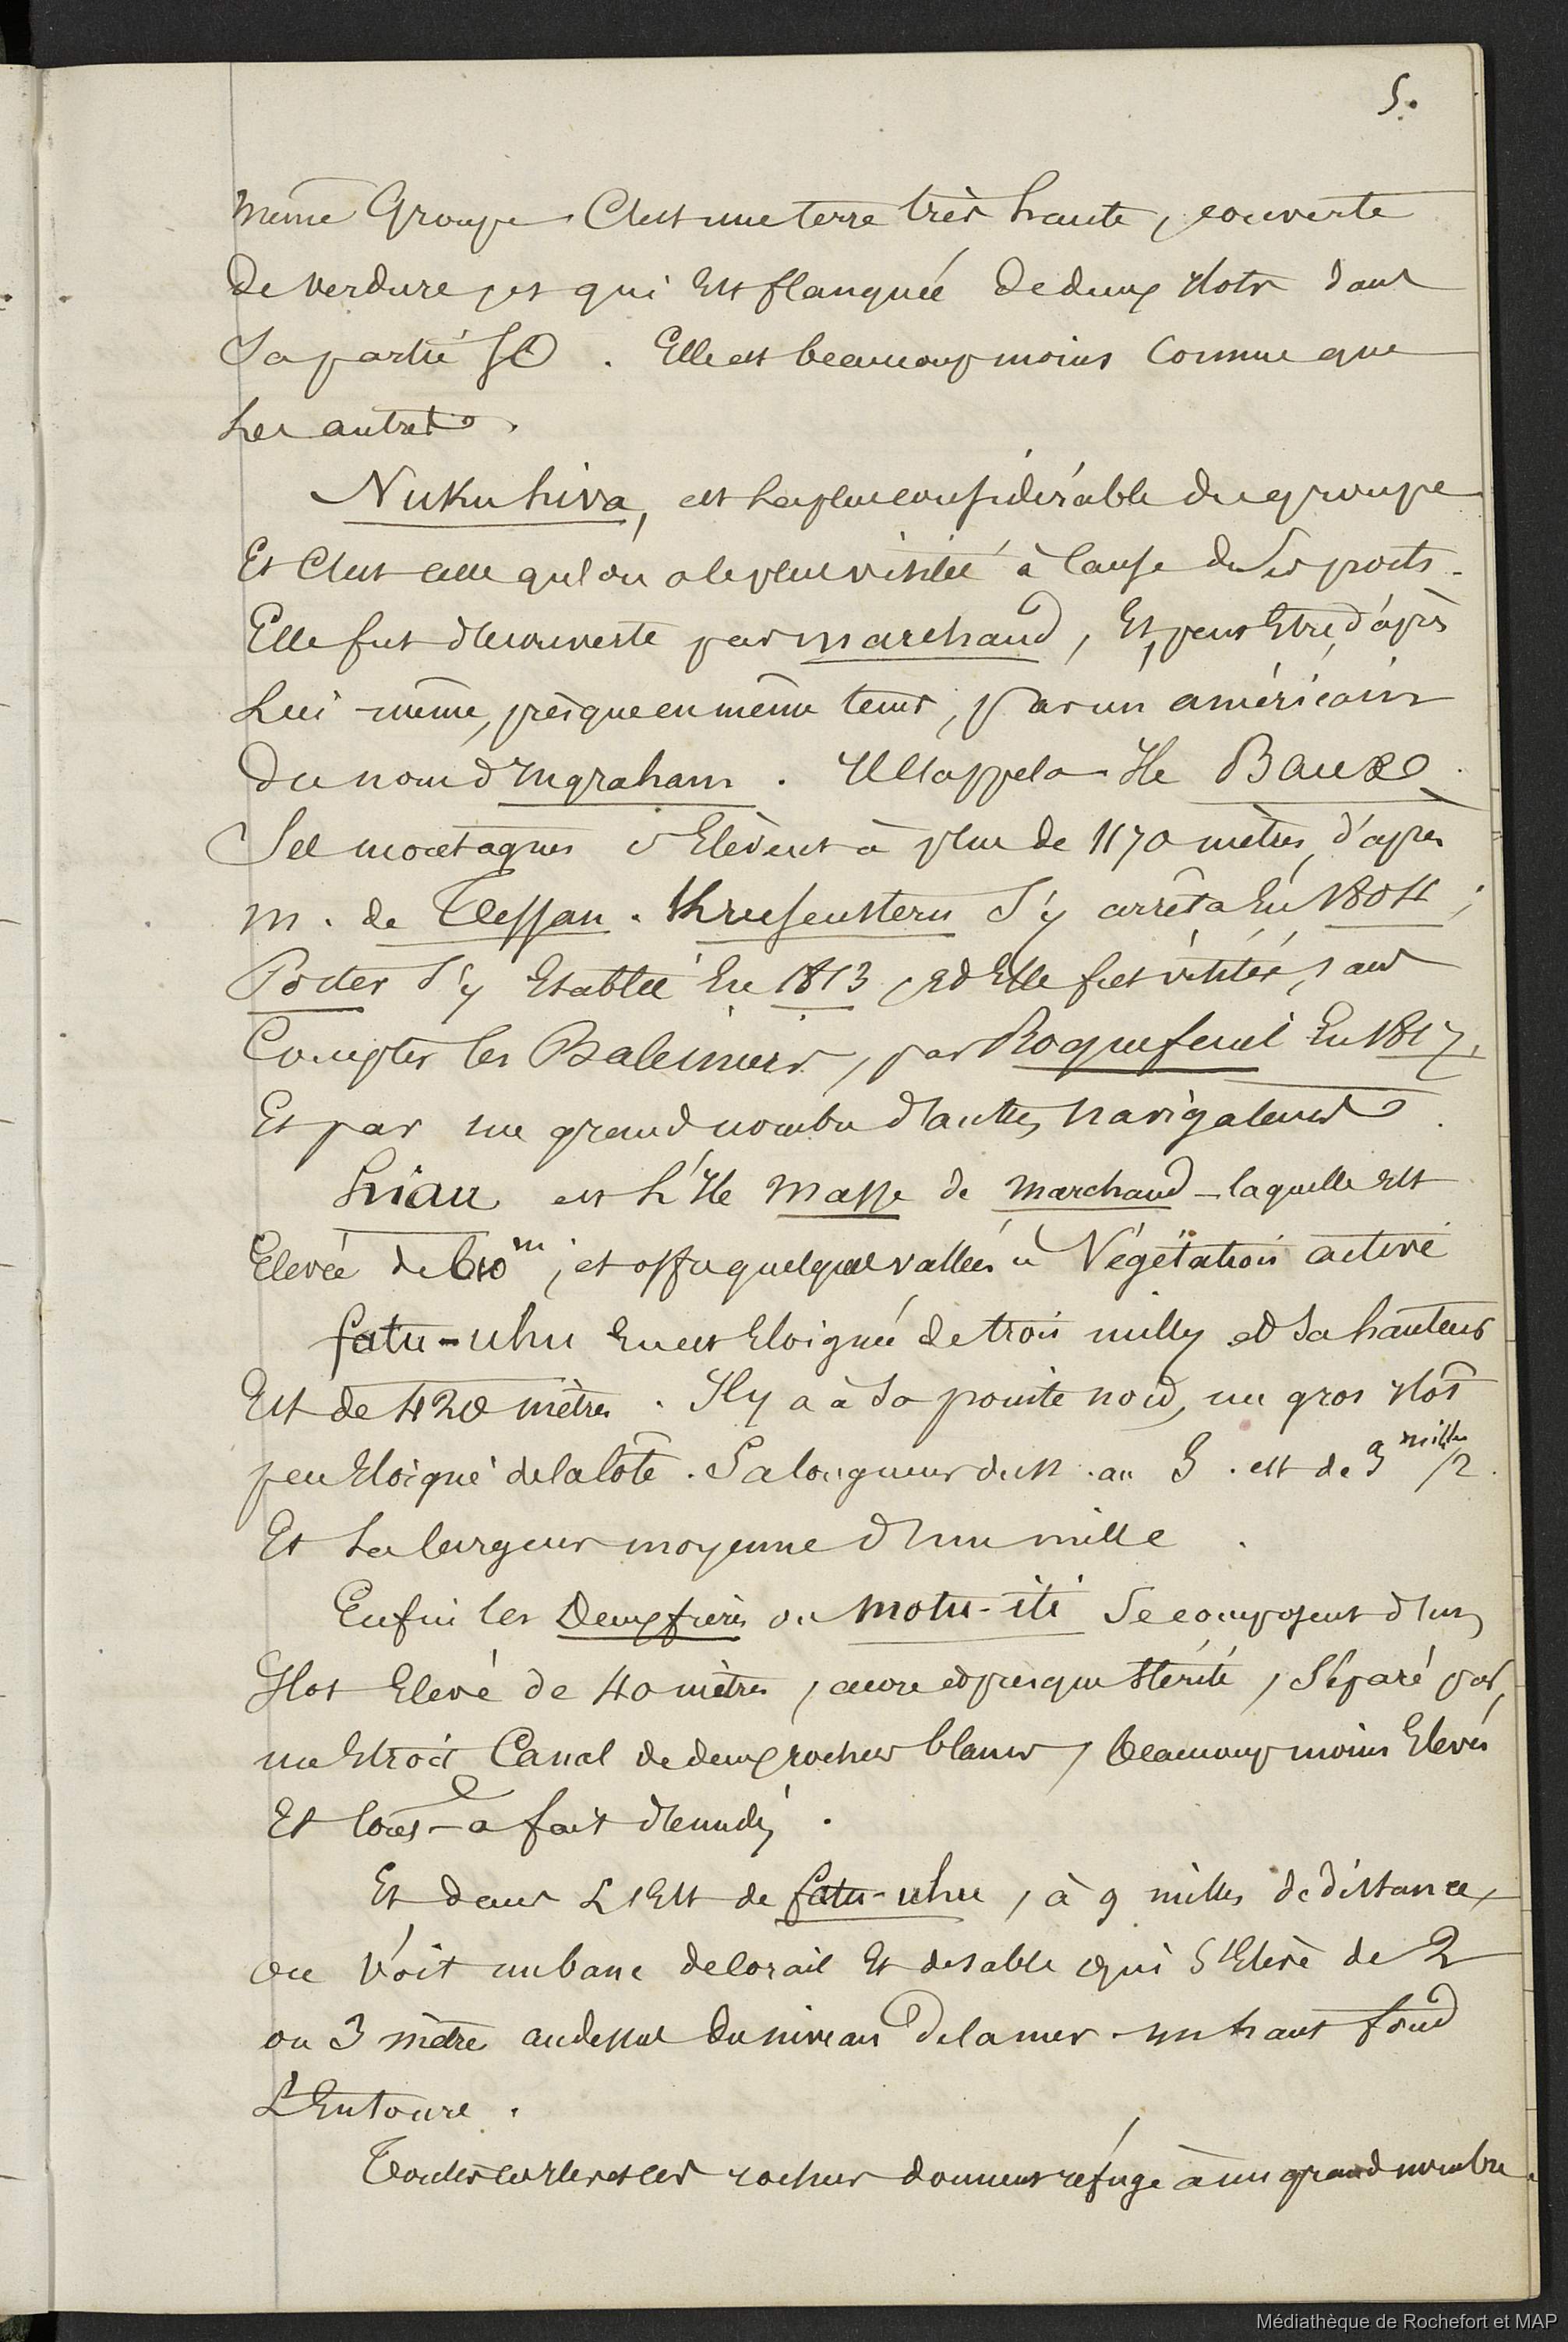 5.
même Groupe. C'est une terre très haute, couverte
de verdure, et qui est flanquée de deux Ilots dans
Sa partie SO. Elle est beaucoup moins connue que
les autres.
Nukuhiva, est la plus considérable du groupe
Et C'est celle qu'on a le plus visitée à Cause de Ses ports.
Elle fut découverte par marchand, Et, peut Etre, d'après
Lui-même, presque en même tems, par un américain
du nom d'Ingraham. Il l'appela Ile Baux.
Ses montagnes s'Elèvent à plus de 1170 mètres, d'après
m. de Tessan. Krusenstern S'y arrêta En 1804;
Porter S'y Etablit En 1813, et Elle fut visitée, sans
Compter les Baleiniers, par Roquefeuil En 1817,
Et par un grand nombre d'autres navigateurs.
hiau est L'Ile Masse de Marchand - laquelle Est
Elevée de 610 m, et offre quelques vallées à Végétation active
fatu-uhu En est Eloignée de trois milles et Sa hauteur
Est de 420 mètres. Il y a à Sa pointe nord, un gros Ilot
peu Eloigné de la Côte. Sa longueur du N. au S. est de 3 milles /2.
Et Sa largeur moyenne d'un mille.
Enfin les Deux frères ou Motu-iti Se composent d'un
Ilot Elevé de 40 mètres, ocre et presque Stérile, Séparé par
un Etroit Canal de deux rochers blancs, beaucoup moins Elevés
Et tout-à fait dénudés.
Et dans L'Est de fatu-uhu, à 9 milles de distance,
on voit un banc de Corail Et de sable qui S'Elève de 2
ou 3 mètres au dessus du niveau de la mer. un haut fond
L'Entoure.
Toutes ces Iles et ces rochers donnent réfuge à un grand nombre
Médiathèque de Rochefort et MAP